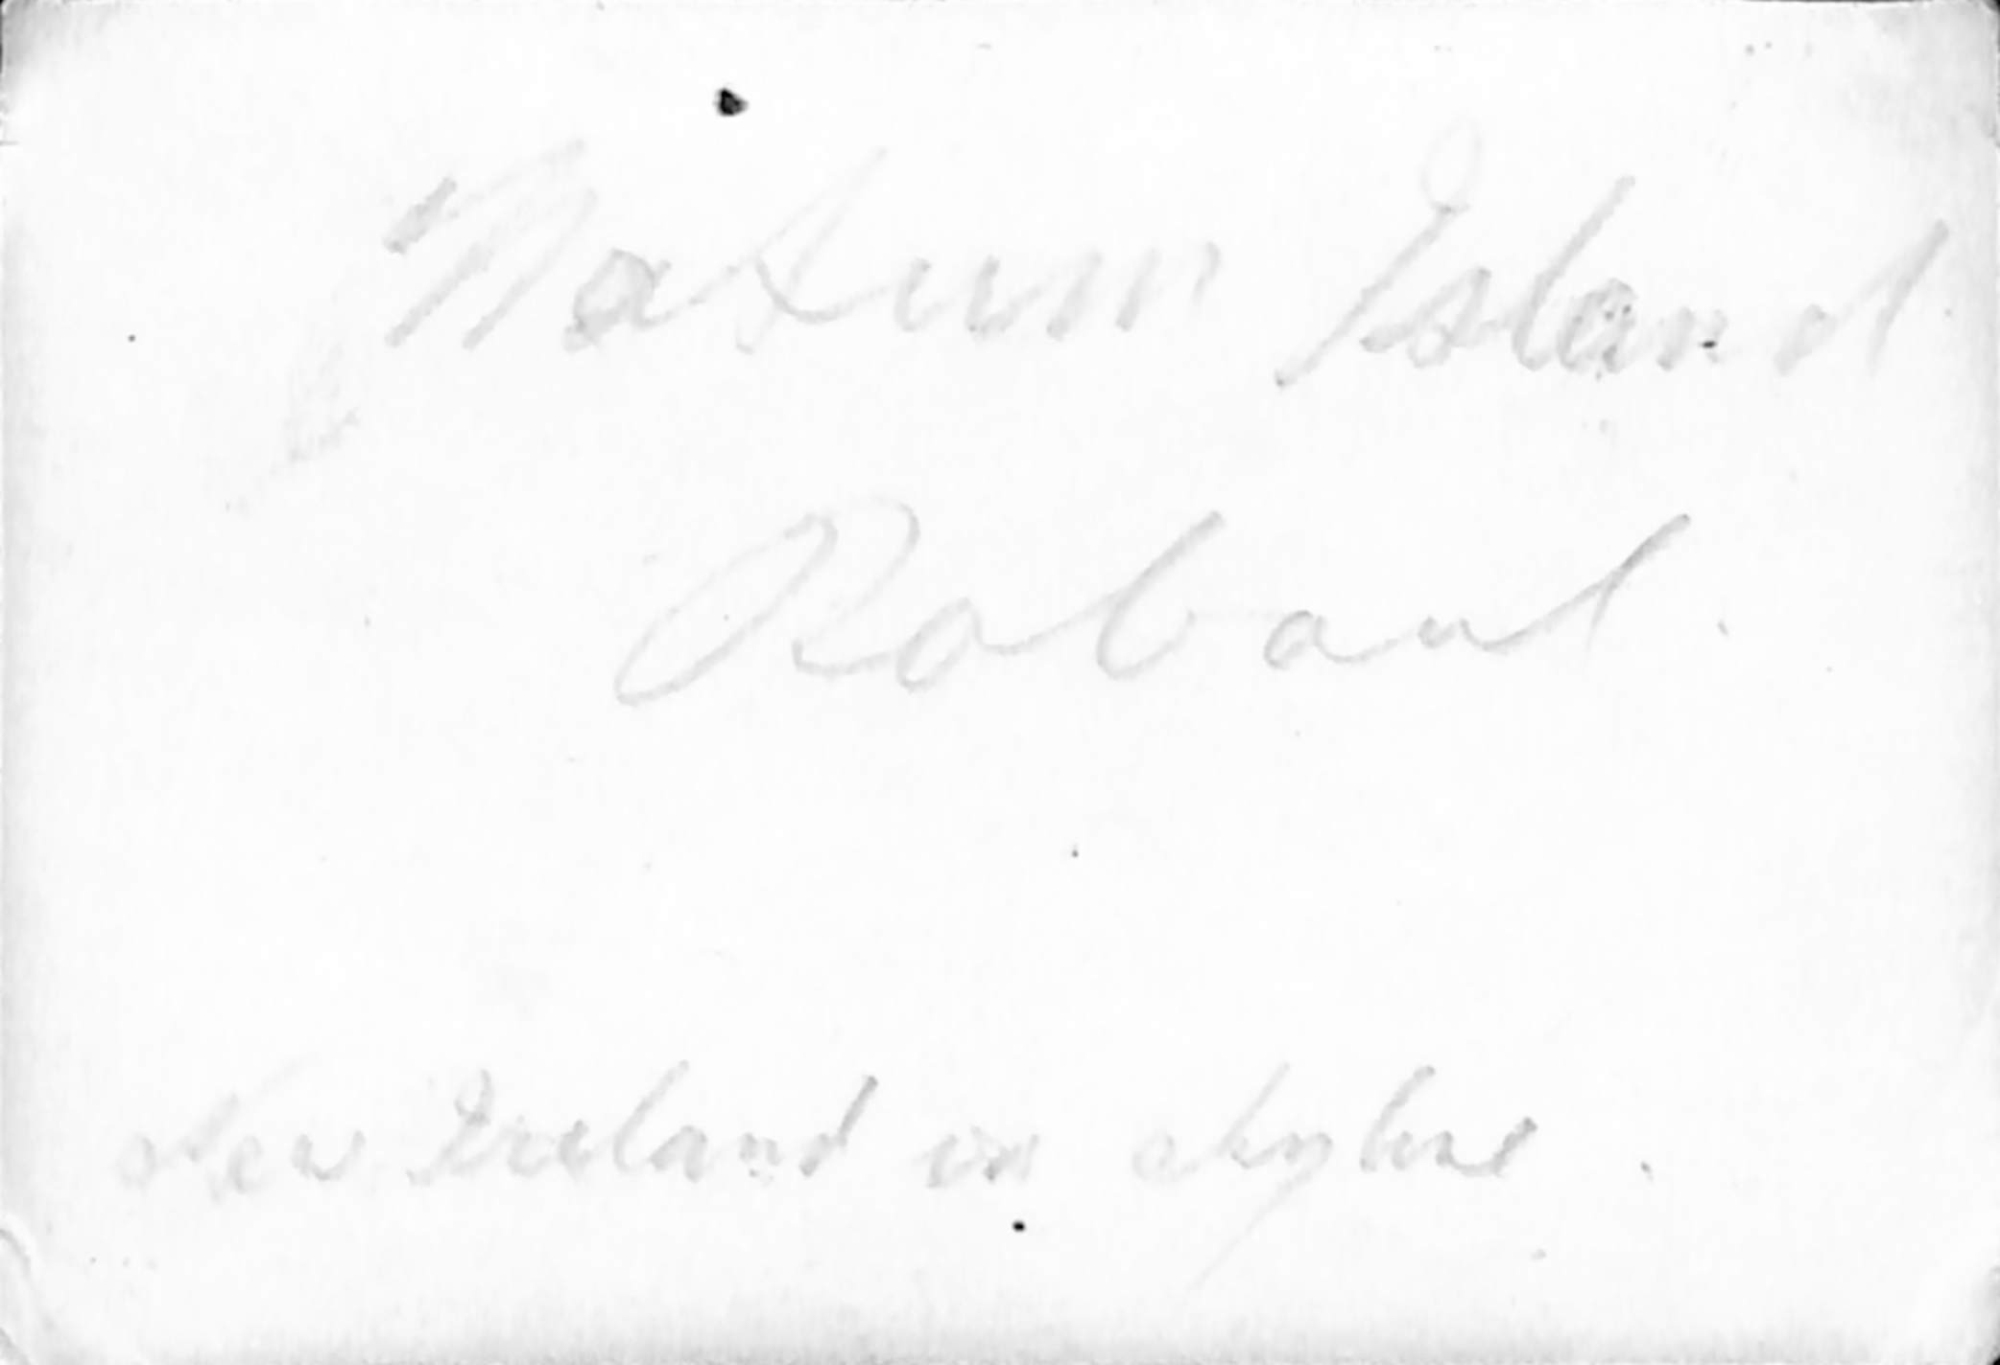 Matum Island
Rabaul.
New Ireland in skyline.